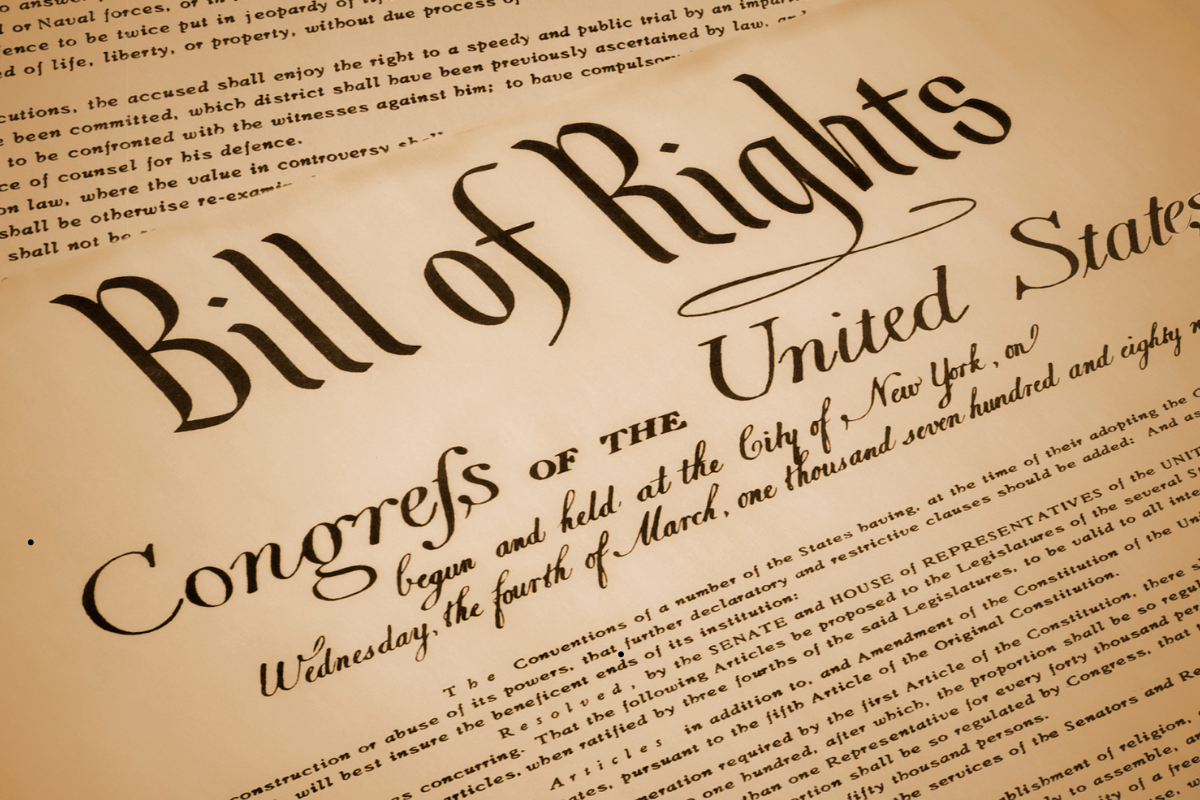 l or Naval forces, or in
fence to be twice put in jeopardy of
ed of life, liberty, or property, without due process of
cutions, the accused shall enjoy the right to a speedy and public trial by an
been committed, which district shall have been previously ascertained by law,
to be confronted with the witnesses against him; to have
ce of counsel for his defence.
on law, where the value in controversy
shall be otherwise
shall not be
Bill of Rights
Congreſs OF THE United States
begun and held at the City of New York, on
Wednesday, the fourth of March, one thousand seven hundred and eighty
The Conventions of a number of the States having, at the time of their adopting the
nstruction or abuse of its powers, that further declaratory and restrictive clauses should be added: And as
will best insure the beneficent ends of its institution:
Resolved, by the SENATE and HOUSE of REPRESENTATIVES of the
concurring. That the following Articles be proposed to the Legislatures of the several
articles, when ratified by three fourths of the said Legislatures, to be valid to all
Articles in addition to, and Amendment of the Constitution of the
ates, pursuant to the fifth Article of the Original Constitution.
meration required by the first Article of the Constitution, there
one hundred, after which, the proportion shall be so
than one Representative for every forty thousand
ortion shall be so regulated by Congress, that
fifty thousand persons.
the services of the Senators and
blishment of religion,
ly to assemble,
ity of a free